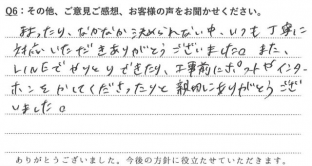 Q6：その他、ご意見ご感想、お客様の声をお聞かせください。
まよったり、なかなか決められない中、いつも丁寧に
対応いただきありがとうございました。また、
LINEでやりとりできたり、工事前にポットやインター
ホンをかしてくださったりと親切にありがとうござ
いました。
ありがとうございました。今後の方針に役立たせていただきます。